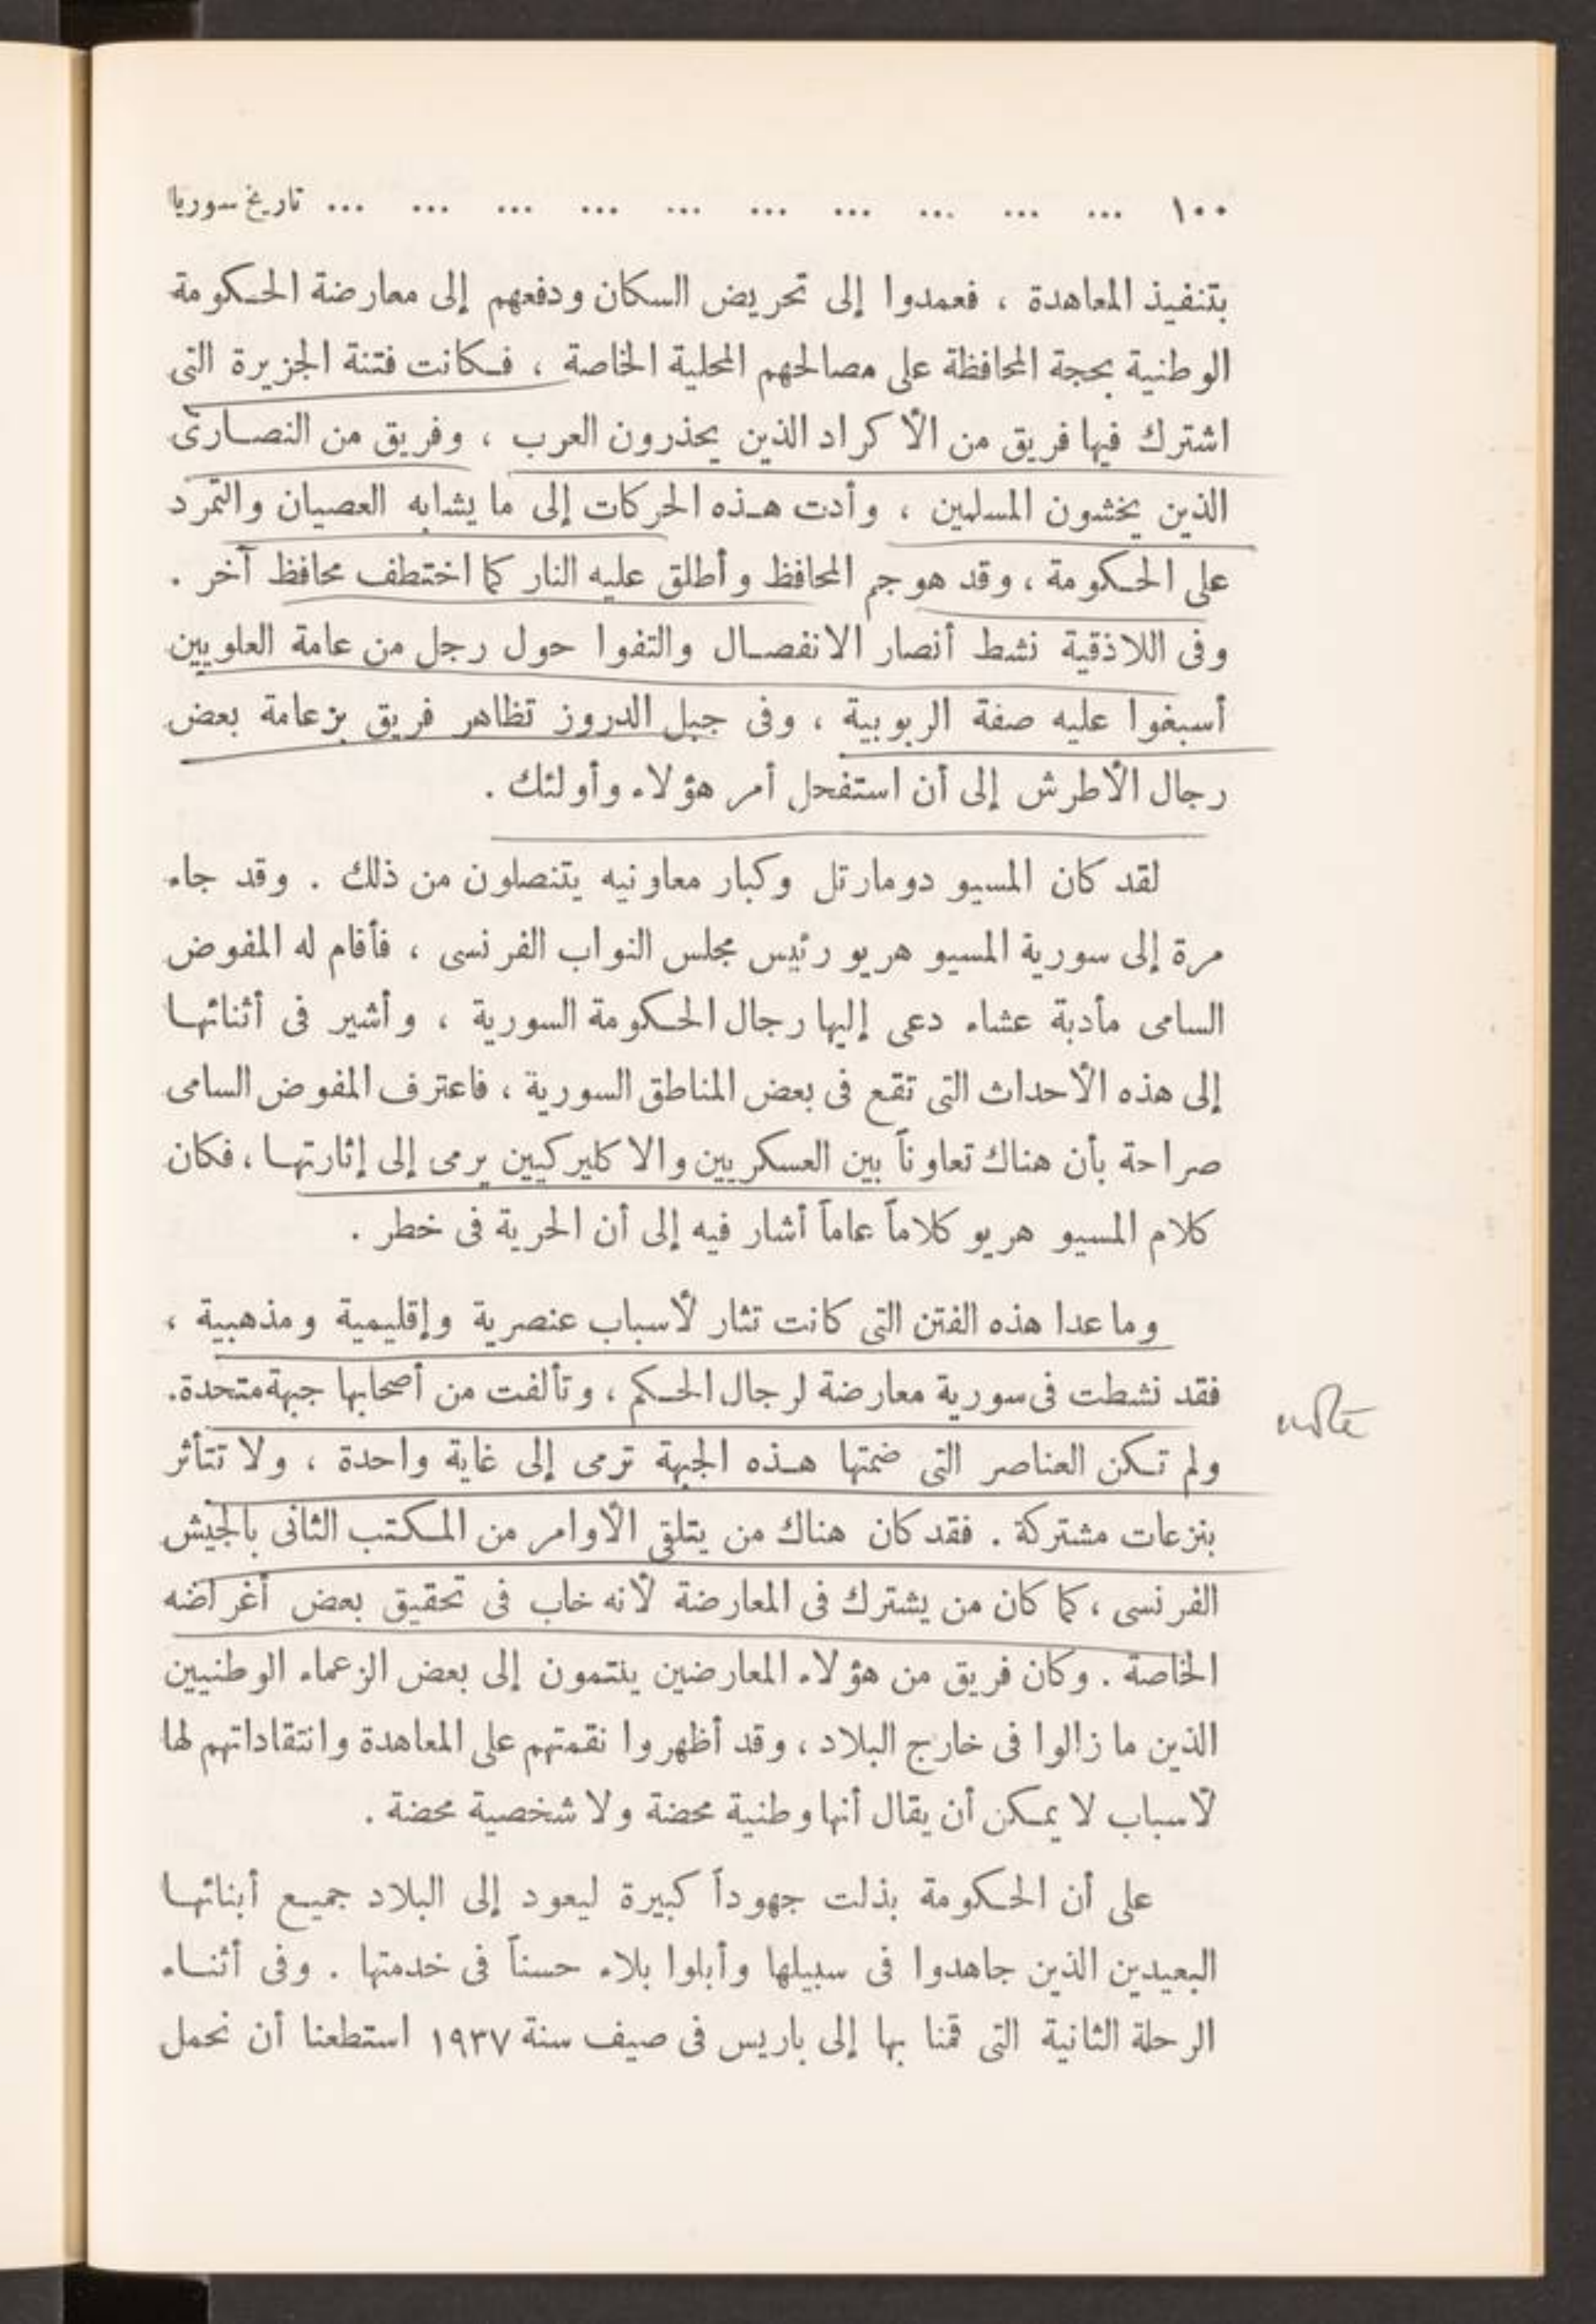 ١٠٠ ... ... ... ... ... ... ... ... ... ... تاريخ سوريا
بتنفيذ المعاهدة ، فعمدوا إلى تحريض السكان ودفعهم إلى معارضة الحكومة
الوطنية بحجة المحافظة على مصالحهم المحلية الخاصة ، فكانت فتنة الجزيرة التى
اشترك فيها فريق من الأكراد الذين يحذرون العرب ، وفريق من النصارى
الذين يخشون المسلمين ، وأدت هذه الحركات إلى ما يشابه العصيان والتمرد
على الحكومة ، وقد هوجم المحافظ وأطلق عليه النار كما اختطف محافظ آخر .
وفى اللاذقية نشط أنصار الانفصال والتفوا حول رجل من عامة العلويين
أسبغوا عليه صفة الربوبية ، وفى جبل الدروز تظاهر فريق بزعامة بعض
رجال الأطرش إلى أن استفحل أمر هؤلاء وأولئك .
لقد كان المسيو دومارتل وكبار معاونيه يتنصلون من ذلك . وقد جاء
مرة إلى سورية المسيو هريو رئيس مجلس النواب الفرنسى ، فأقام له المفوض
السامى مأدبة عشاء دعى إليها رجال الحكومة السورية ، وأشير فى أثنائها
إلى هذه الأحداث التى تقع فى بعض المناطق السورية ، فاعترف المفوض السامى
صراحة بأن هناك تعاوناً بين العسكريين والاكليركيين يرمى إلى إثارتها ، فكان
كلام المسيو هريو كلاماً عاماً أشار فيه إلى أن الحرية فى خطر .
وما عدا هذه الفتن التى كانت تثار لأسباب عنصرية وإقليمية ومذهبية ،
فقد نشطت فى سورية معارضة لرجال الحكم ، وتألفت من أصحابها جبهة متحدة.
note
ولم تكن العناصر التى ضمتها هذه الجبهة ترمى إلى غاية واحدة ، ولا تتأثر
بنزعات مشتركة . فقد كان هناك من يتلقى الأوامر من المكتب الثانى بالجيش
الفرنسى ، كما كان من يشترك فى المعارضة لأنه خاب فى تحقيق بعض أغراضه
الخاصة . وكان فريق من هؤلاء المعارضين ينتمون إلى بعض الزعماء الوطنيين
الذين ما زالوا فى خارج البلاد ، وقد أظهروا نقمتهم على المعاهدة وانتقاداتهم لها
لأسباب لا يمكن أن يقال أنها وطنية محضة ولا شخصية محضة .
على أن الحكومة بذلت جهوداً كبيرة ليعود إلى البلاد جميع أبنائها
البعيدين الذين جاهدوا فى سبيلها وأبلوا بلاء حسناً فى خدمتها . وفى أثناء
الرحلة الثانية التى قمنا بها إلى باريس فى صيف سنة ١٩٣٧ استطعنا أن نحمل